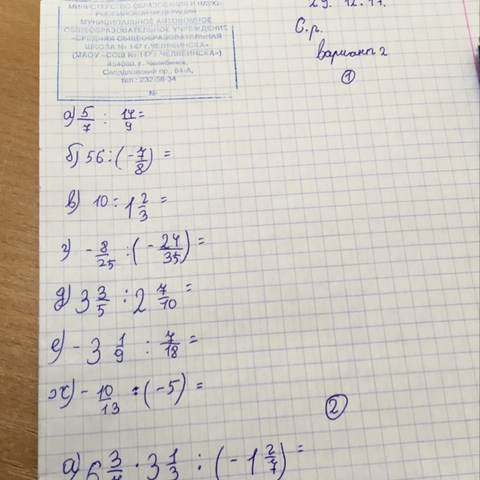 МИНИСТЕРСТВО ОБРАЗОВАНИЯ И НАУКИ
МУНИЦИПАЛЬНОЕ АВТОНОМНОЕ
ОБЩЕОБРАЗОВАТЕЛЬНОЕ УЧРЕЖДЕНИЕ
«СРЕДНЯЯ ОБЩЕОБРАЗОВАТЕЛЬНАЯ
ШКОЛА № 147 г. ЧЕЛЯБИНСКА»
(МАОУ «СОШ № 147 г. ЧЕЛЯБИНСКА»)
454080, г. Челябинск,
Свердловский пр., 64-А,
тел.: 232-58-34
№
29. 12. 17.
С.р.
вариант 2
①
а) 5/7 : 14/9 =
б) 56 : (-7/8) =
в) 10 : 1 2/3 =
г) - 8/25 : (- 24/35) =
д) 3 3/5 : 2 7/10 =
е) - 3 1/9 : 7/18 =
ж) - 10/13 : (-5) =
②
а) 6 · 3 1/3 : (- 1 2/7) =